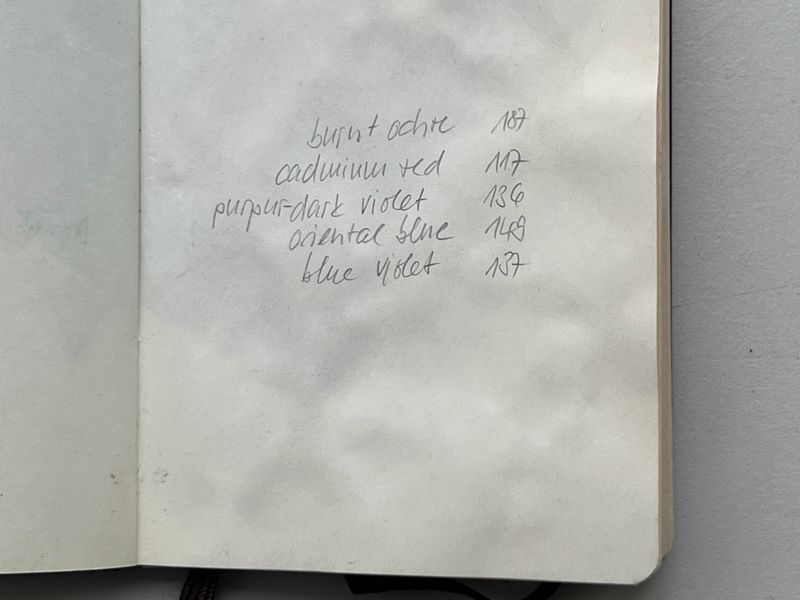 burnt ochre 187
cadmium red 117
purpur-dark violet 136
oriental blue 149
blue violet 137